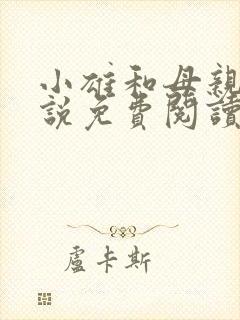 小雄和母親
說免費閱讀
盧卡斯